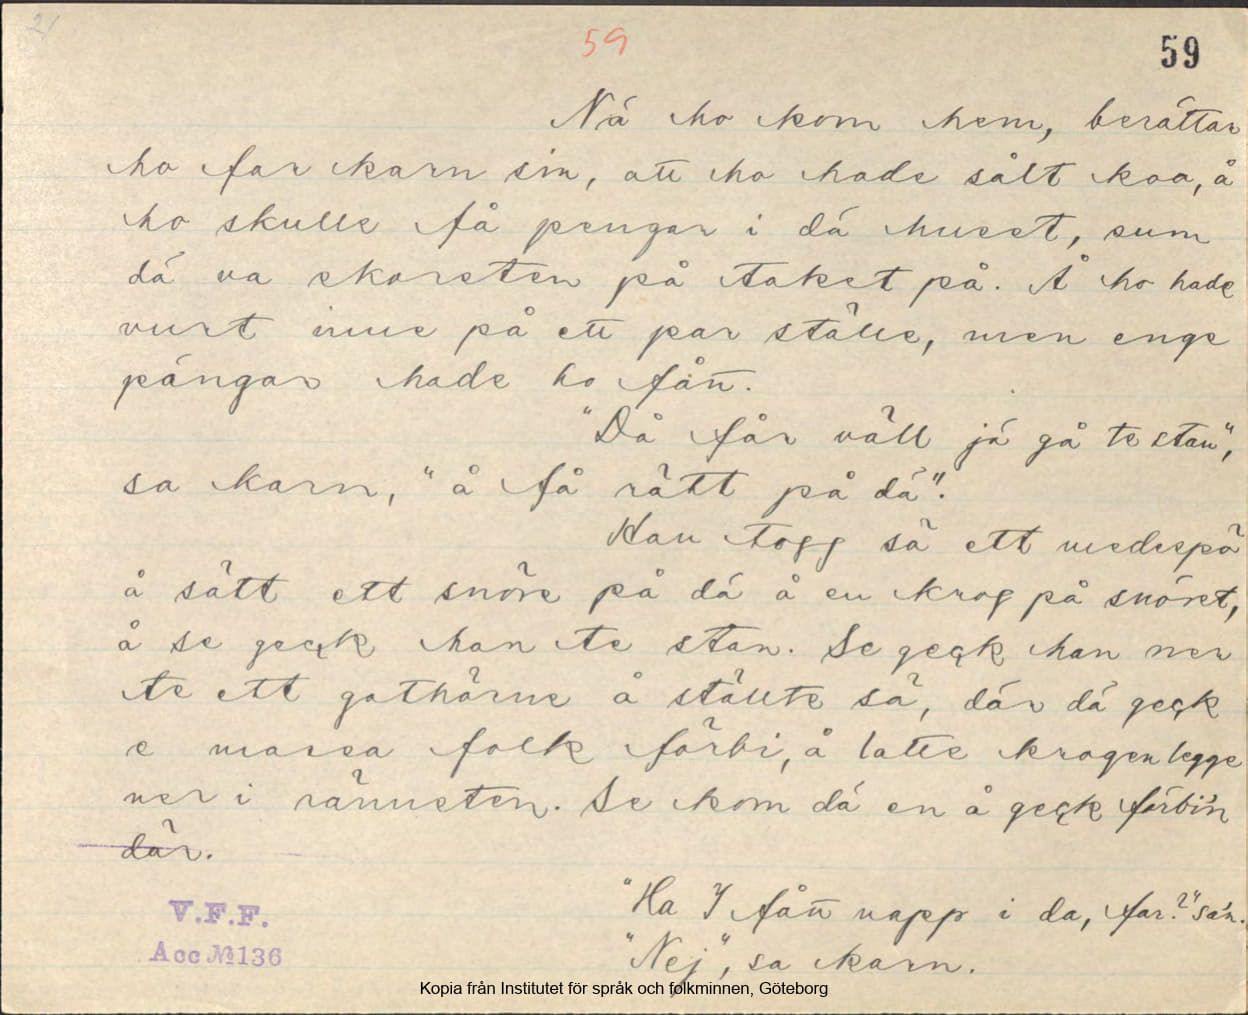 21
59
59
Nä ho kom hem, berättar
ho far karn sin, att ho hade sålt koa, å
ho skulle få pengar i dä huset, sum
dä va skorsten på taket på. Å ho hade
vurt inne på ett par ställe, men enge
pängar hade ho fån̄.
"Då får väll jä gå te stan",
sa karn, "å få rätt på dä".
Han togg sä ett medespö
å sätt ett snöre på dä å en krog på snöret,
å se geçk han te stan. Se geçk han ner
te ett gathörne å ställte sä, där dä geçk
e massa folk förbi, å latte krogen legge
ner i rännsten. Se kom dä en å geçk förbi'n
där.
"Ha I fån̄ napp i da, far?" sa'n.
"Nej", sa karn.
V.F.F.
Acc № 136
Kopia från Institutet för språk och folkminnen, Göteborg